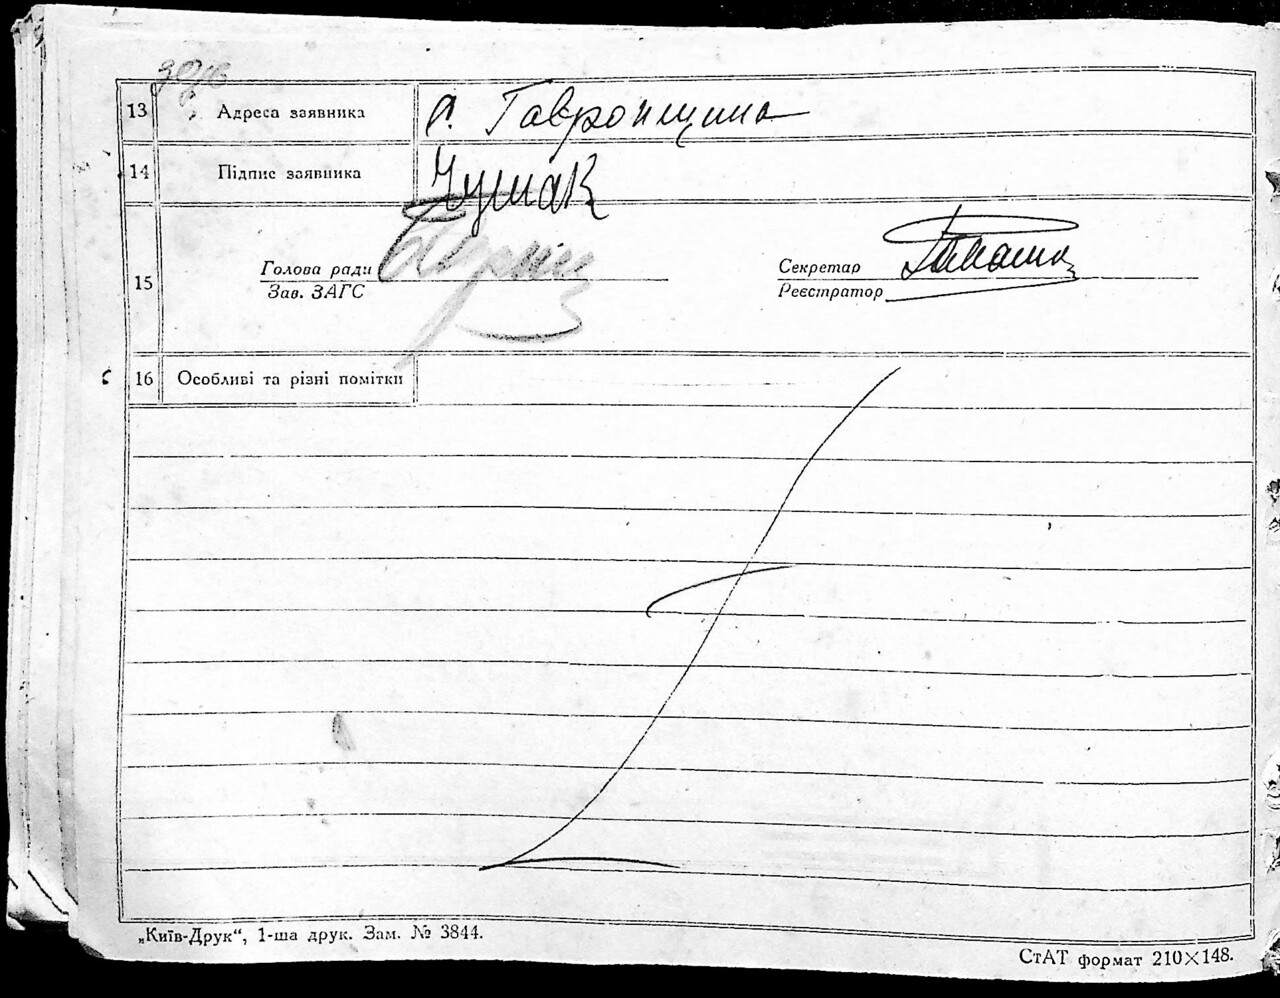 13 Адреса заявника с. Гавронщина
14 Підпис заявника Чушак
15 Голова ради Секретар
Зав. ЗАГС Реєстратор
16 Особливі та різні помітки
„Київ-Друк“, 1-ша друк. Зам. № 3844.
СтАТ формат 210×148.